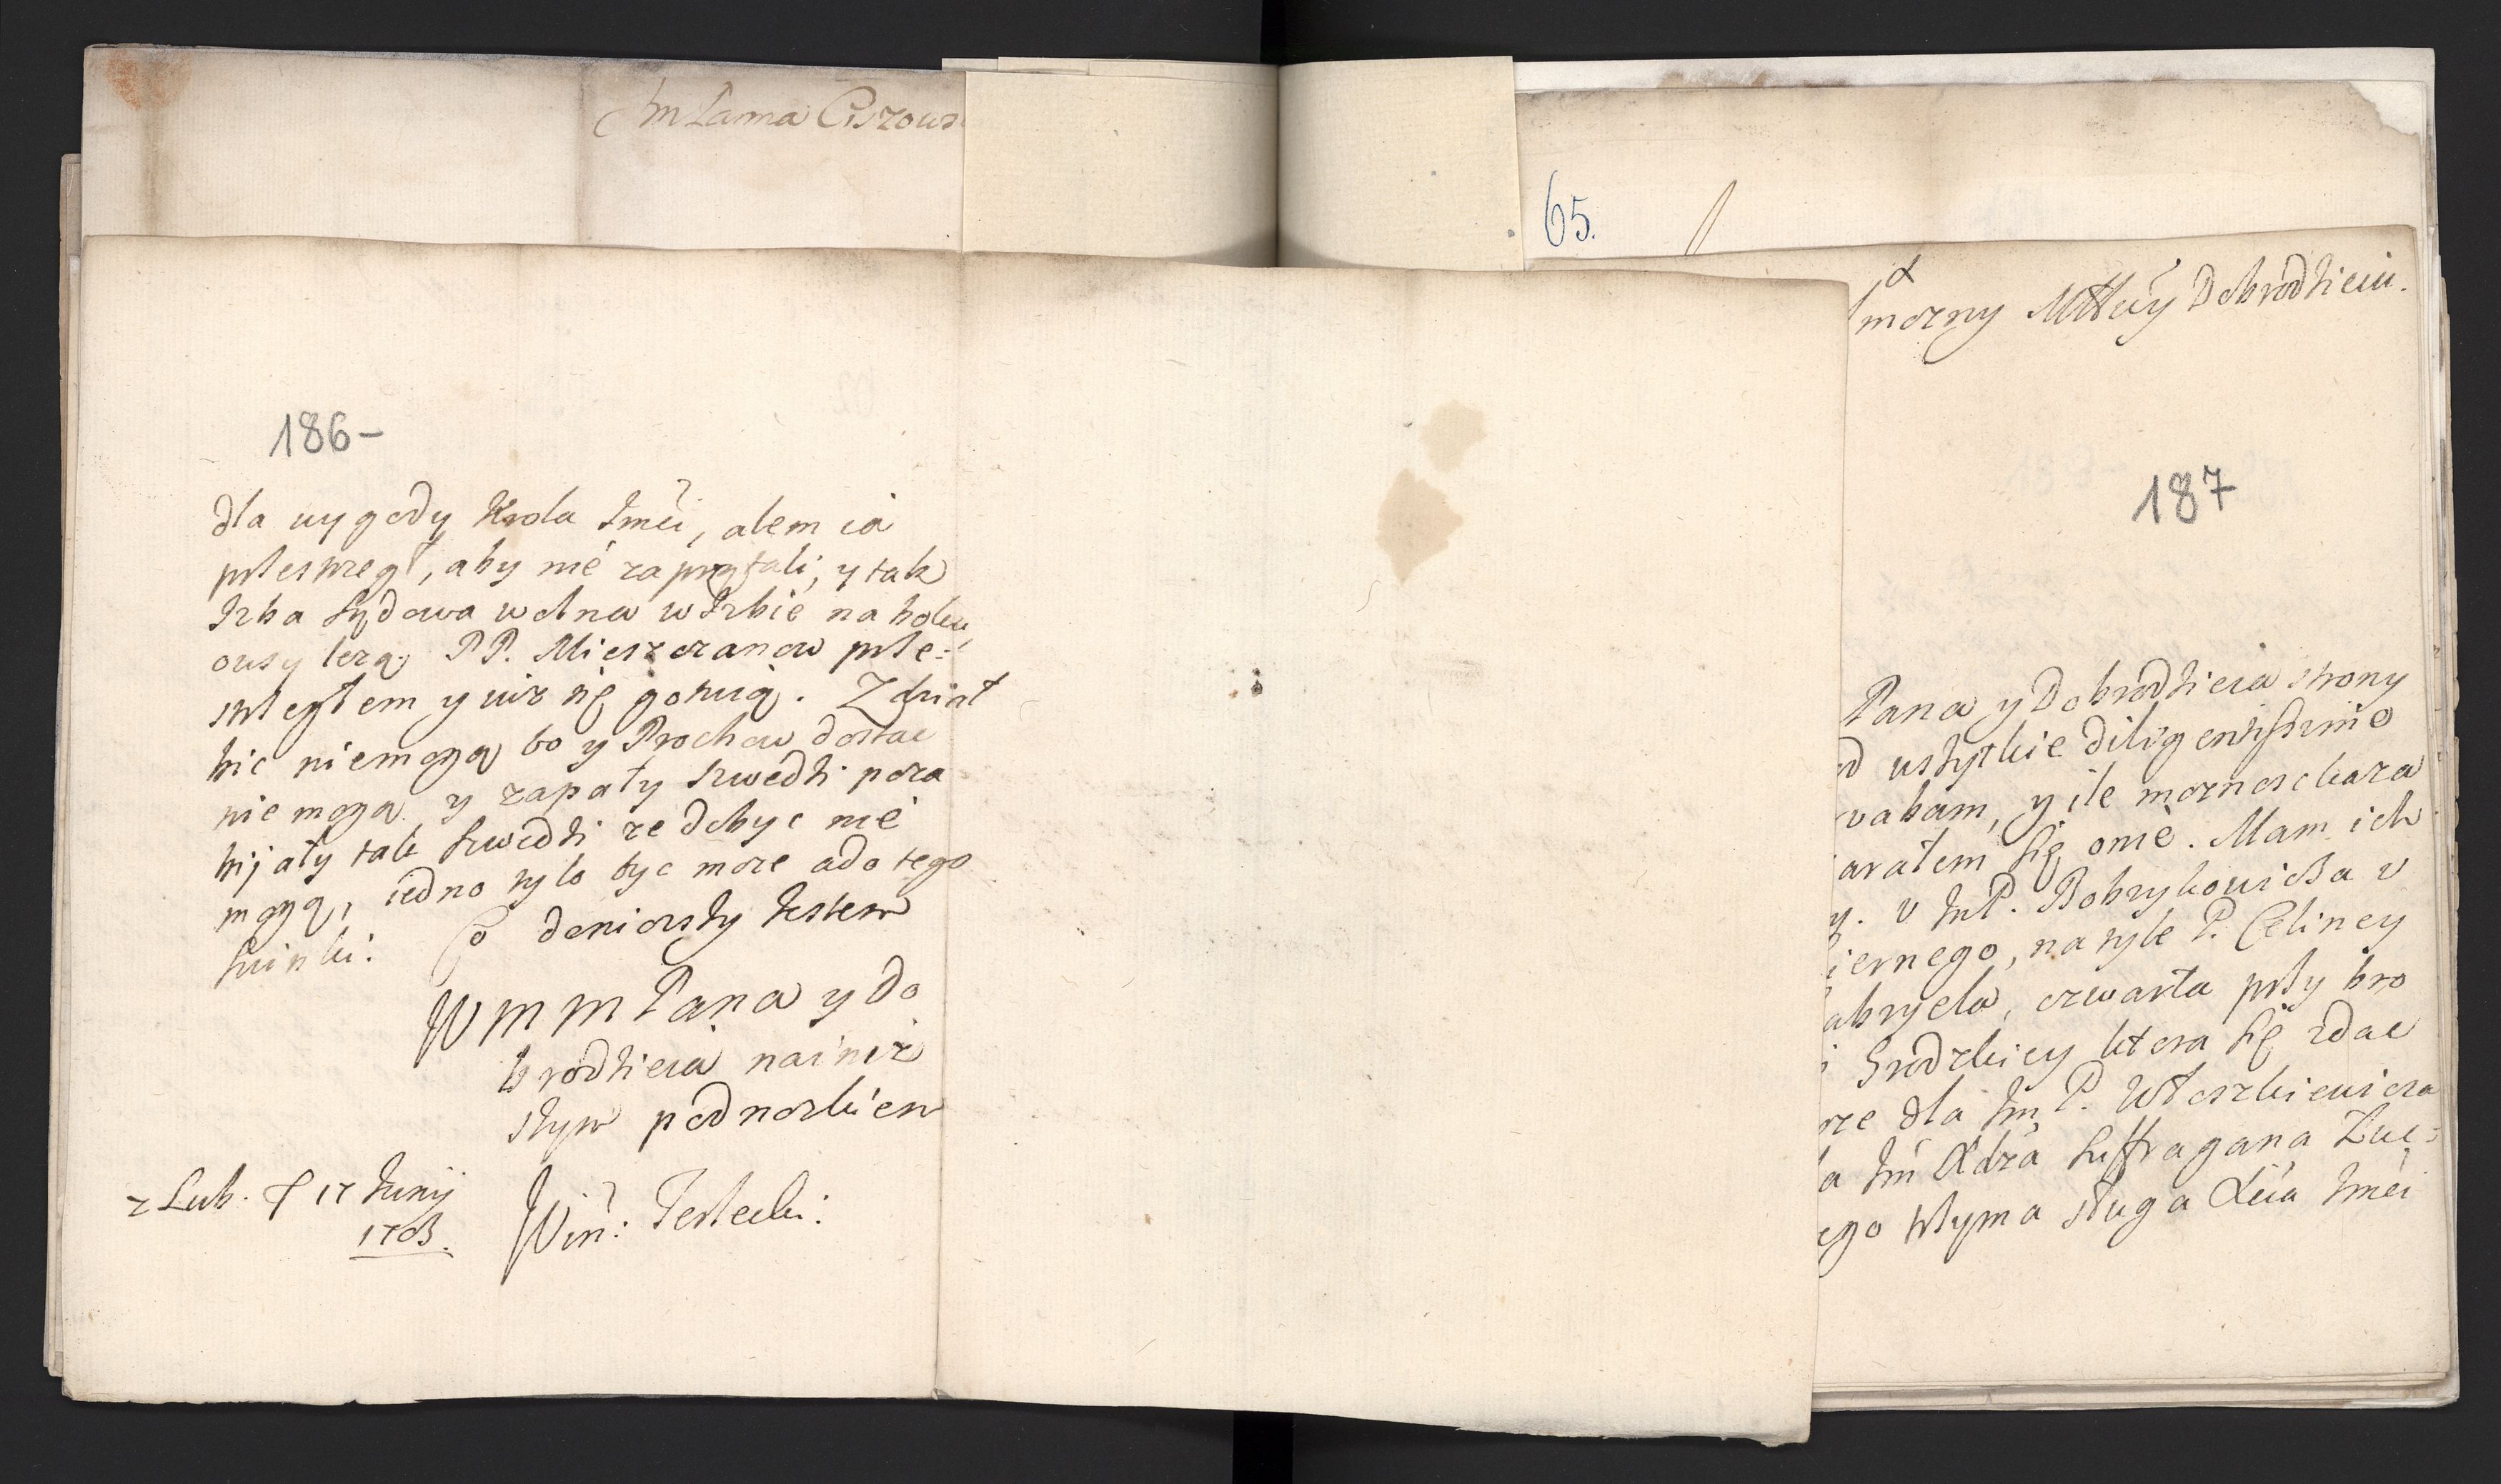 Im Pana Ciszows
65.
186-
dla wygody Krola Imći, alem ia
przestrzegł, aby nie zaprzątali, y tak
Izba Sądowa wolna w Izbie na holu
owsy lezą. PP. Mieszczanow prze=
strzegłem y iuz się gotuią. Z dział
bic niemogą bo y Prochow dostac
nie mogą y zapały Szwedzi poza
bijały tak Szwedzi ze dobyc nie
mogą, iedno tylo byc moze a do tego
Co doniozszy Iestem
W M M Pana y Do
brodzieia nainiz
szym podnozkiem
z Lub. d 17 Junij
1703.
Win: Terlecki.
mozny Mttwy Dobrodzieiu.
187
Pana y Dobrodzieia strony
od wszytkie diligentissime
wabam, y ile moznosc kaza
arałem się onie. Mam ich
y. v ImP. Bobrykowicza v
iernego, na tyle P. Celiney
abryela, czwarta przy bro
i Grodzkiey ktora się zdac
rze dla Im P. Wtoszkiewicza
la Im Xdza Suffragana Łuc=
ego trzyma sługa Xcia Imći